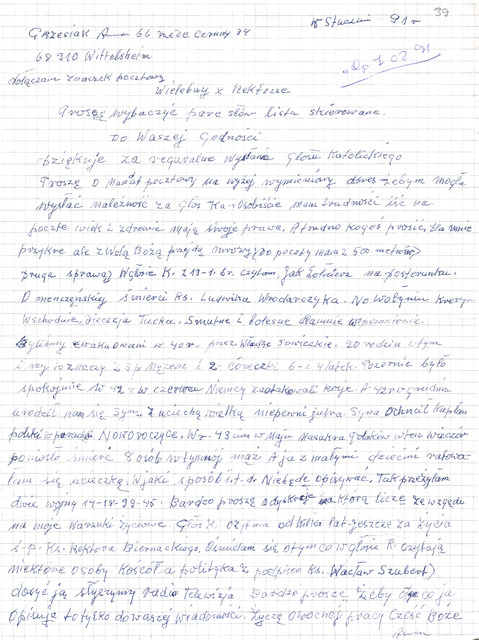 39
W Styczniu 91 r
Grzesiak Anna 66
68310 Wittelsheim
dołączam znaczek pocztowy
Wielebny x Rektorze
Proszę wybaczyć parę słów listu skierowane
Do Waszej Godności
Dziękuję za regularne Wysłanie Głosu Katolickiego
Proszę o Mandat pocztowy na wyżej wymieniony adres żebym mogła
wysłać należność za Głos Ka- Osobiście mam trudności iść na
pocztę wiek i zdrowie mają swoje prawa, A trudno kogoś prosić, dla mnie
przykre ale z Wolą Bożą przejdą mrozy do poczty mam 500 metrów
druga sprawa, W głosie K. z 13-1. br. czytam, Jak żołnierz na posterunku.
O męczeńskiej śmierci Ks. Ludwika Wrodarczyka. Na Wołyniu Kresy-
Wschodnie, diecezja Łucka. Smutne i bolesne dla mnie wspomnienie.
Byliśmy ewakuowani w 40 r. przez Władze sowieckie. 20 rodzin w tym
i my rodzice z mężem i 2 córeczki 6-i 4 latek. Pozornie było
spokojnie w czerwcu Niemcy zaatakowali Rosję. A 42 r w grudniu
urodził nam się Syn. Z uciechą wielką niepewni jutra Syna Ochrzcił Kapłan
polski w parafii Nowo W r- 43 cim w Maju Masakra Polaków w ten wieczór
poniosło śmierć 8 osób w tym mój mąż A ja z małymi dziećmi ratowa-
łam się ucieczką. W jaki sposób i t. d. Nie będę opisywać. Tak przeżyłam
dwie wojny 14-18-39-45. Bardzo proszę o dyskrecję na którą liczę ze względu
na moje Warunki życiowe Głos K. Czytam od kilka lat jeszcze za życia
ś. p. Ks. Rektora Biernackiego. Ośmielam się o tym co w głosie K. czytają
niektóre osoby Kościół a polityka z podpisem Ks. Wacław Szubert)
dosyć ją słyszymy radio Telewizja. Bardzo proszę żeby co ja
Opisuję to tylko do waszej wiadomości. Życzę owocnej pracy Cześć Boże
Anna